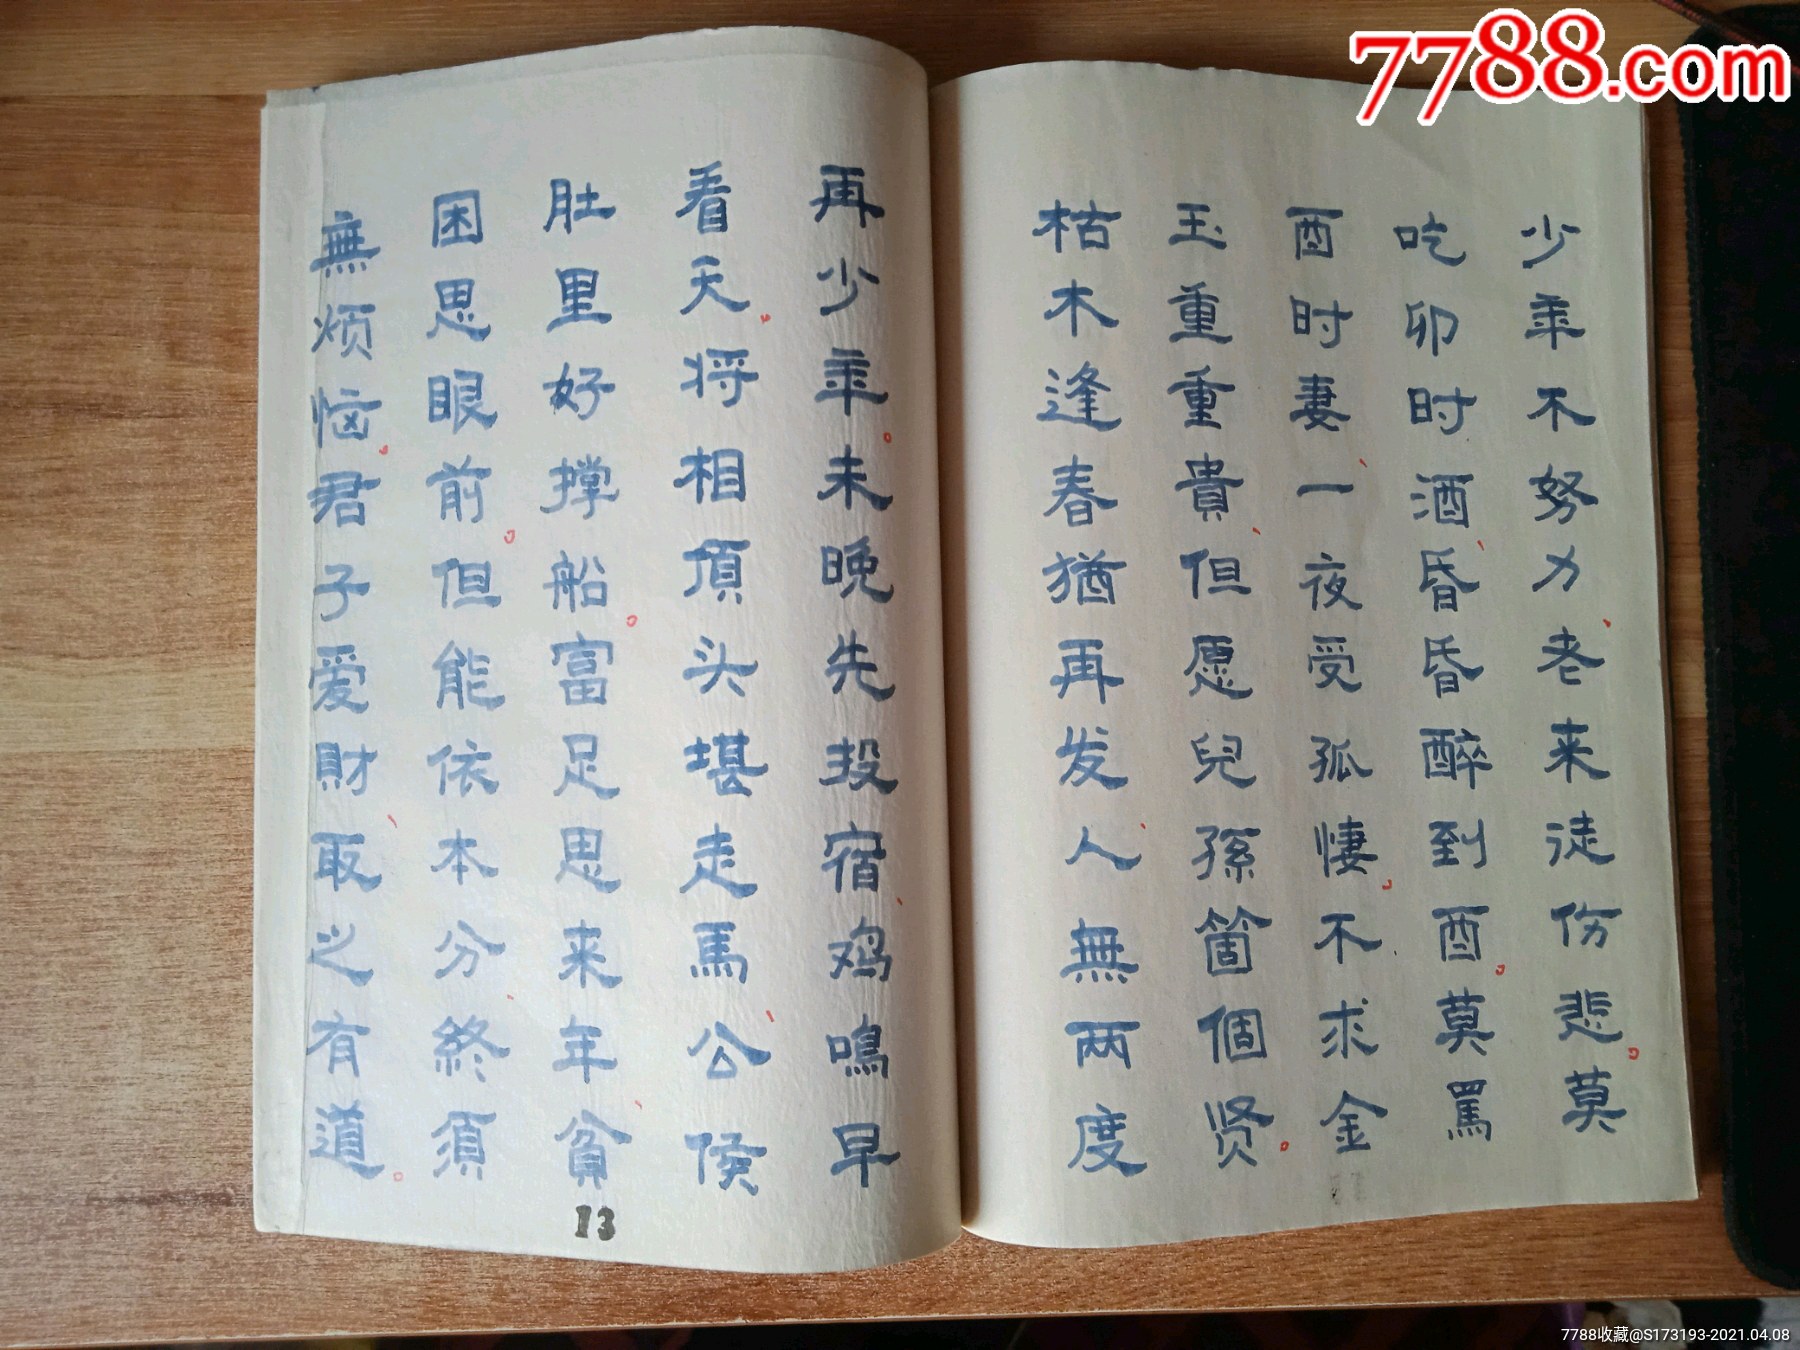 7788.com
少年不努力、老来徒伤悲。莫
吃卯时酒、昏昏醉到酉。莫罵
酉时妻、一夜受孤悽。不求金
玉重重貴、但愿兒孫箇個贤。
枯木逢春猶再发、人無两度
再少年。未晚先投宿、鸡鳴早
看天。将相頂头堪走馬、公侯
肚里好撑船。富足思来年、貧
困思眼前。但能依本分、終須
無烦恼。君子爱財、取之有道。
13
7788收藏@S173193-2021.04.08